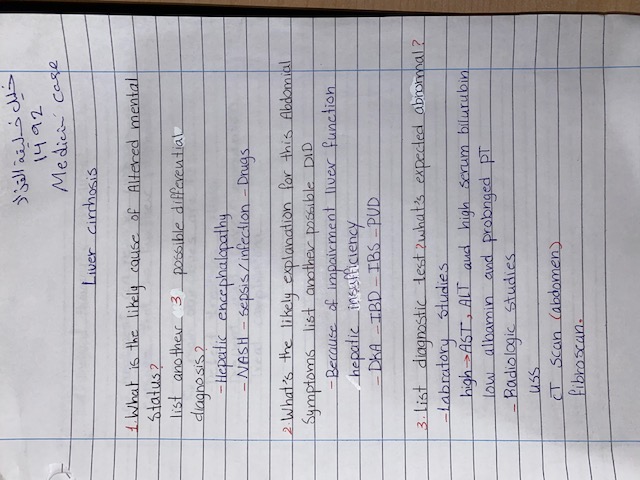 خليفة
١٤٩٢
Medicine case
Liver cirrhosis
1. What is the likely cause of Altered mental
status?
list another 3 possible differential
diagnosis?
- Hepatic encephalopathy
- NASH - sepsis/infection - Drugs
2. What's the likely explanation for this Abdomial
Symptoms list another possible DID
- Because of impairment liver function
hepatic insufficiency
- DKA - IBD - IBS - PUD
3. list diagnostic test? what's expected abnormal?
- Labratory studies
high → AST, ALT and high serum bilurubin
low albamin and prolonged PT
- Radiologic studies
USS
CT scan (abdomen)
fibroscan.